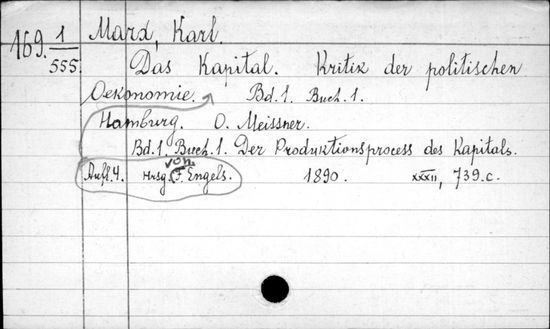 169. 1/555. Marx, Karl.
Das Kapital. Kritik der politischen
Oekonomie. Bd.1. Buch.1.
Hamburg. O. Meissner.
Bd.1. Buch.1. Der Produktionsprocess des Kapitals.
Aufl.4. Hrsg. von F. Engels. 1890. XXXII, 739.c.